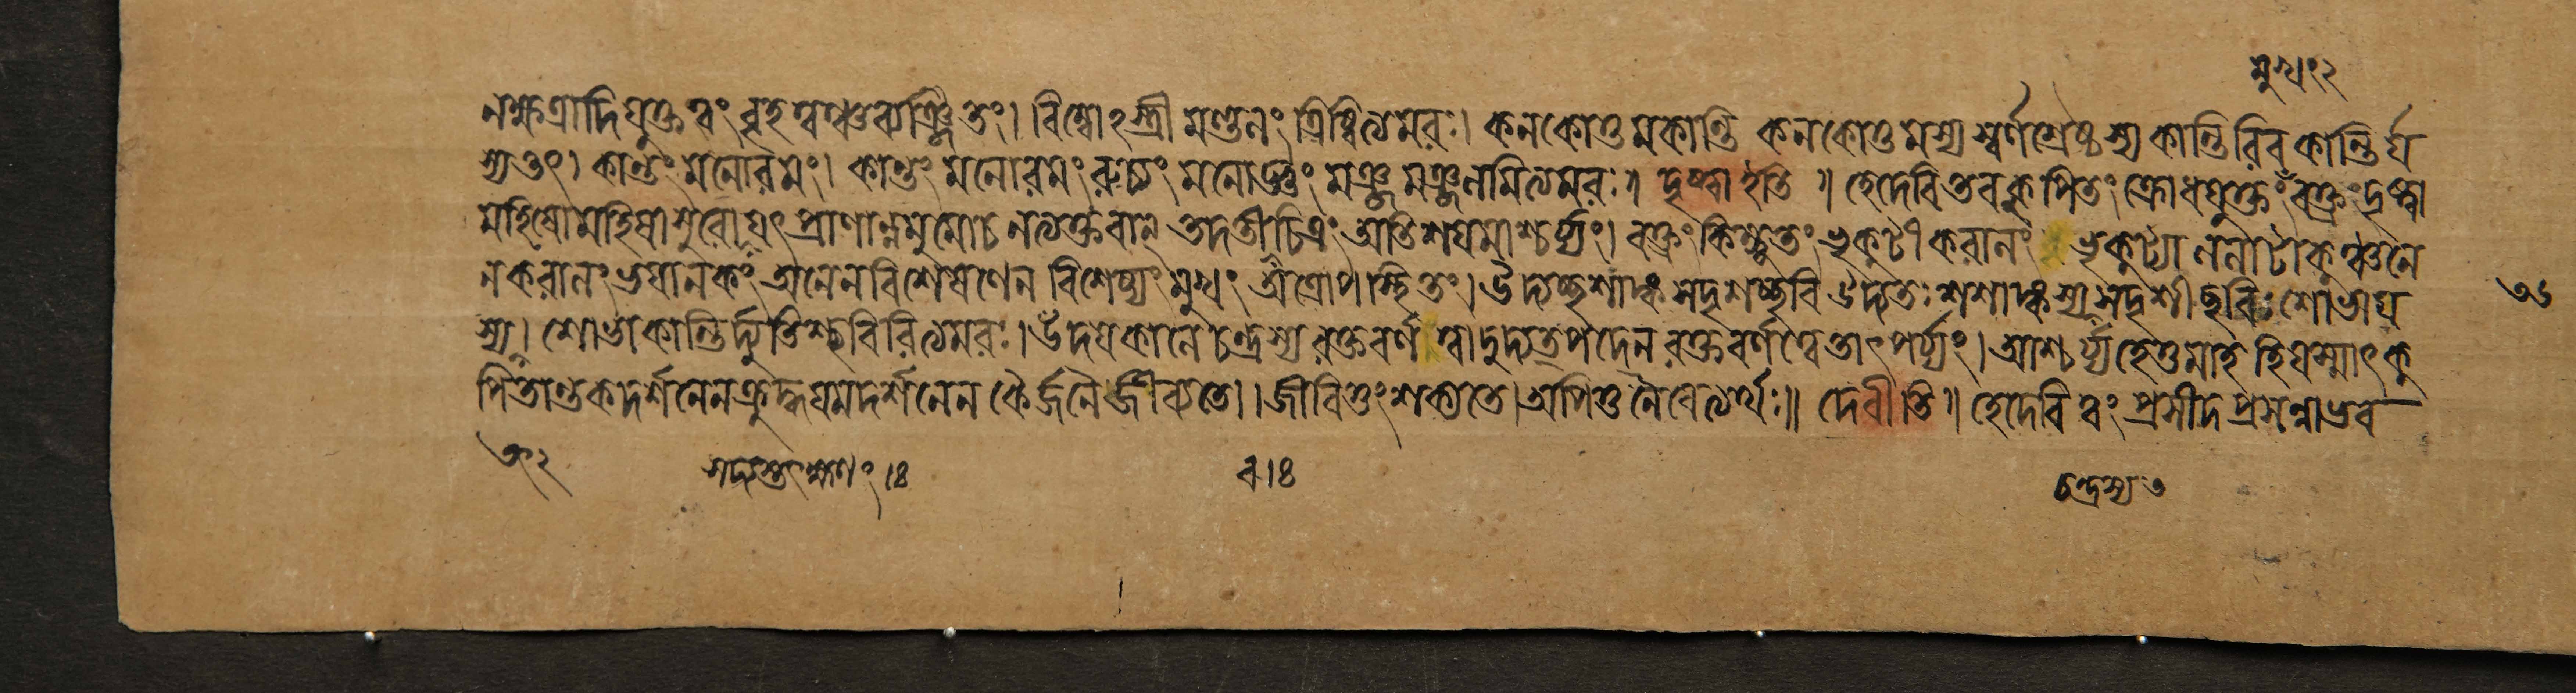 মুখং২
নক্ষত্রাদিযুক্তত্বং বৃহত্বঞ্চব্যঞ্জিতং। বিম্বোঽস্ত্রী মণ্ডলং ত্রিষ্বিত্যমরঃ। কনকোত্তমকান্তি কনকোত্তমস্য স্বর্ণশ্রেষ্ঠস্য কান্তিরিব কান্তির্য
স্যতৎ। কান্তং মনোরমং। কান্তং মনোরমং রুচ্যং মনোজ্ঞং মঞ্জু মঞ্জুলমিত্যমরঃ॥ দৃষ্ট্বা ইতি ॥ হেদেবি তব কুপিতং ক্রোধযুক্তং বক্ত্রং দৃষ্ট্বা
মহিষো মহিষাসুরো যৎ প্রাণান্নমুমোচ নত্যক্তবান্ তদতীচিত্রং অতিশয়মাশ্চর্য্যং। বক্ত্রং কিম্ভূতং ভৃকুটীকরালং ভৃকুট্যা ললাটাকুঞ্চনে
নকরালং ভয়ানকং অনেনবিশেষণেন বিশেষ্যং মুখং অত্রোপস্থিতং। উদ্যচ্ছশাঙ্কসদৃশচ্ছবি উদ্যতঃ শশাঙ্কস্য সদৃশী ছবিঃ শোভা য
স্য। শোভাকান্তির্দ্যুতিশ্ছবিরিত্যমরঃ। উদয়কালে চন্দ্রস্য রক্তবর্ণত্বাদুদ্যত্পদেন রক্তবর্ণত্বেতাৎপর্য্যং। আশ্চর্য্যহেতুমাহ হিযস্মাৎ কু
পিতান্তকদর্শনেন ক্রুদ্ধযমদর্শনেন কৈর্জনৈর্জীব্যতে।। জীবিতুং শক্যতে। অপিতু নৈবেত্যর্থঃ॥ দেবীতি॥ হেদেবি ত্বং প্রসীদ প্রসন্নাভব
চন্দ্রস্য